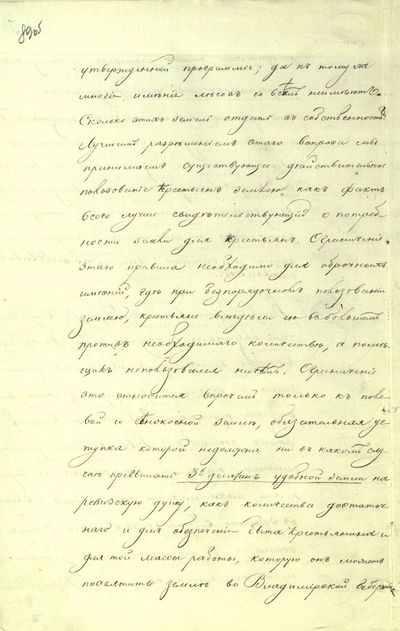 утвержденной программы; да къ тому же
многія имѣнія лѣсовъ совсѣмъ неимѣютъ.
Сколько этихъ земель отдать въ собственность?
Лучшимъ разрѣшеніемъ этаго вопроса мы
принимаемъ существующее дѣйствительное
пользованіе крестьянъ землею, какъ фактъ
всего лучше свидѣтельствующій о потреб
ности земли для крестьянъ. Ограниченіе
этаго правила необходимо для оброчныхъ
имѣній, гдѣ при безпорядочномъ пользованіи
землею, крестьяне владѣли ею въ большемъ
противъ необходимаго количествѣ, а помѣ
щикъ непользовался ничѣмъ. Ограниченіе
это относится впрочемъ только къ поле
вой и сѣнокосной землѣ, обязательная ус
тупка которой недолжна ни въ какомъ слу
чаѣ превышать 3хъ десятинъ удобной земли на
ревизскую душу, какъ количества достаточ
наго и для обезпеченія быта крестьянина и
для той массы работы, которую онъ можетъ
посвятить землѣ во Владимірской Губерніи